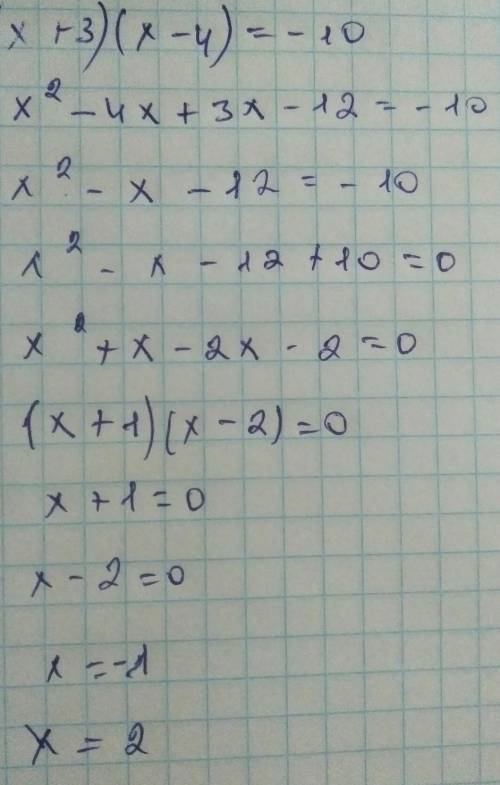 (x + 3)(x - 4) = - 10
x² - 4x + 3x - 12 = - 10
x² - x - 12 = - 10
x² - x - 12 + 10 = 0
x² + x - 2x - 2 = 0
(x + 1)(x - 2) = 0
x + 1 = 0
x - 2 = 0
x = -1
x = 2